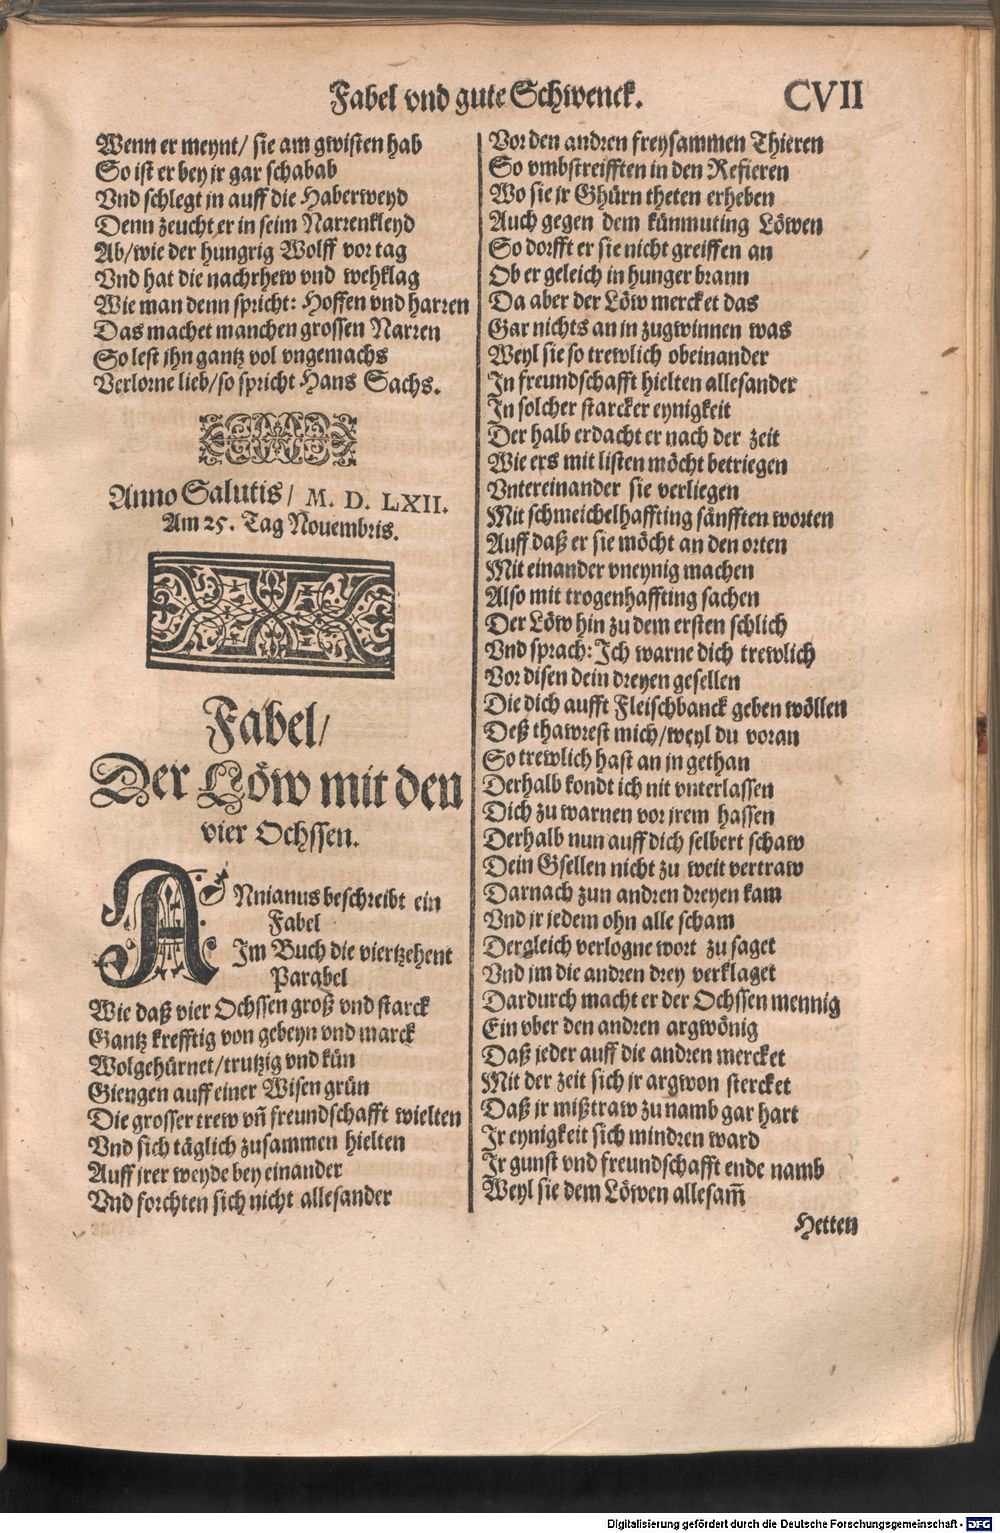 Fabel vnd gute Schwenck.
CVII
Wenn er meynt/ sie am gwisten hab
So ist er bey jr gar schabab
Vnd schlegt jn auff die Haberweyd
Denn zeucht er in seim Narrenkleyd
Ab/wie der hungrig Wolff vor tag
Vnd hat die nachrhew vnd wehklag
Wie man denn spricht: Hoffen vnd harren
Das machet manchen grossen Narren
So lest jhn gantz vol vngemachs
Verlorne lieb/so spricht Hans Sachs.
Anno Salutis/ M. D. LXII.
Am 25. Tag Nouembris.
Fabel/
Der Löw mit den
vier Ochssen.
ANnianus beschreibt ein
Fabel
Im Buch die viertzehent
Parabel
Wie daß vier Ochssen groß vnd starck
Gantz krefftig von gebeyn vnd marck
Wolgehürnet/trutzig vnd kün
Giengen auff einer Wisen grün
Die grosser trew vñ freundschafft wielten
Vnd sich täglich zusammen hielten
Auff jrer weyde bey einander
Vnd forchten sich nicht allesander
Vor den andren freysammen Thieren
So vmbstreifften in den Refieren
Wo sie jr Ghürn theten erheben
Auch gegen dem künmuting Löwen
So dorfft er sie nicht greiffen an
Ob er geleich in hunger brann
Da aber der Löw mercket das
Gar nichts an in zugwinnen was
Weyl sie so trewlich obeinander
In freundschafft hielten allesander
In solcher starcker eynigkeit
Der halb erdacht er nach der zeit
Wie ers mit listen möcht betriegen
Vntereinander sie verliegen
Mit schmeichelhaffting sänfften worten
Auff daß er sie möcht an den orten
Mit einander vneynig machen
Also mit trogenhaffting sachen
Der Löw hin zu dem ersten schlich
Vnd sprach: Ich warne dich trewlich
Vor disen dein dreyen gesellen
Die dich aufft Fleischbanck geben wöllen
Deß thawrest mich/weyl du voran
So trewlich hast an jn gethan
Derhalb kondt ich nit vnterlassen
Dich zu warnen vor jrem hassen
Derhalb nun auff dich selbert schaw
Dein Gsellen nicht zu weit vertraw
Darnach zun andren dreyen kam
Vnd jr jedem ohn alle scham
Dergleich verlogne wort zu saget
Vnd jm die andren drey verklaget
Dardurch macht er der Ochssen mennig
Ein vber den andren argwönig
Daß jeder auff die andren mercket
Mit der zeit sich jr argwon stercket
Daß jr mißtraw zu namb gar hart
Ir eynigkeit sich mindren ward
Ir gunst vnd freundschafft ende namb
Weyl sie dem Löwen allesam̃
Hetten
Digitalisierung gefördert durch die Deutsche Forschungsgemeinschaft - DFG